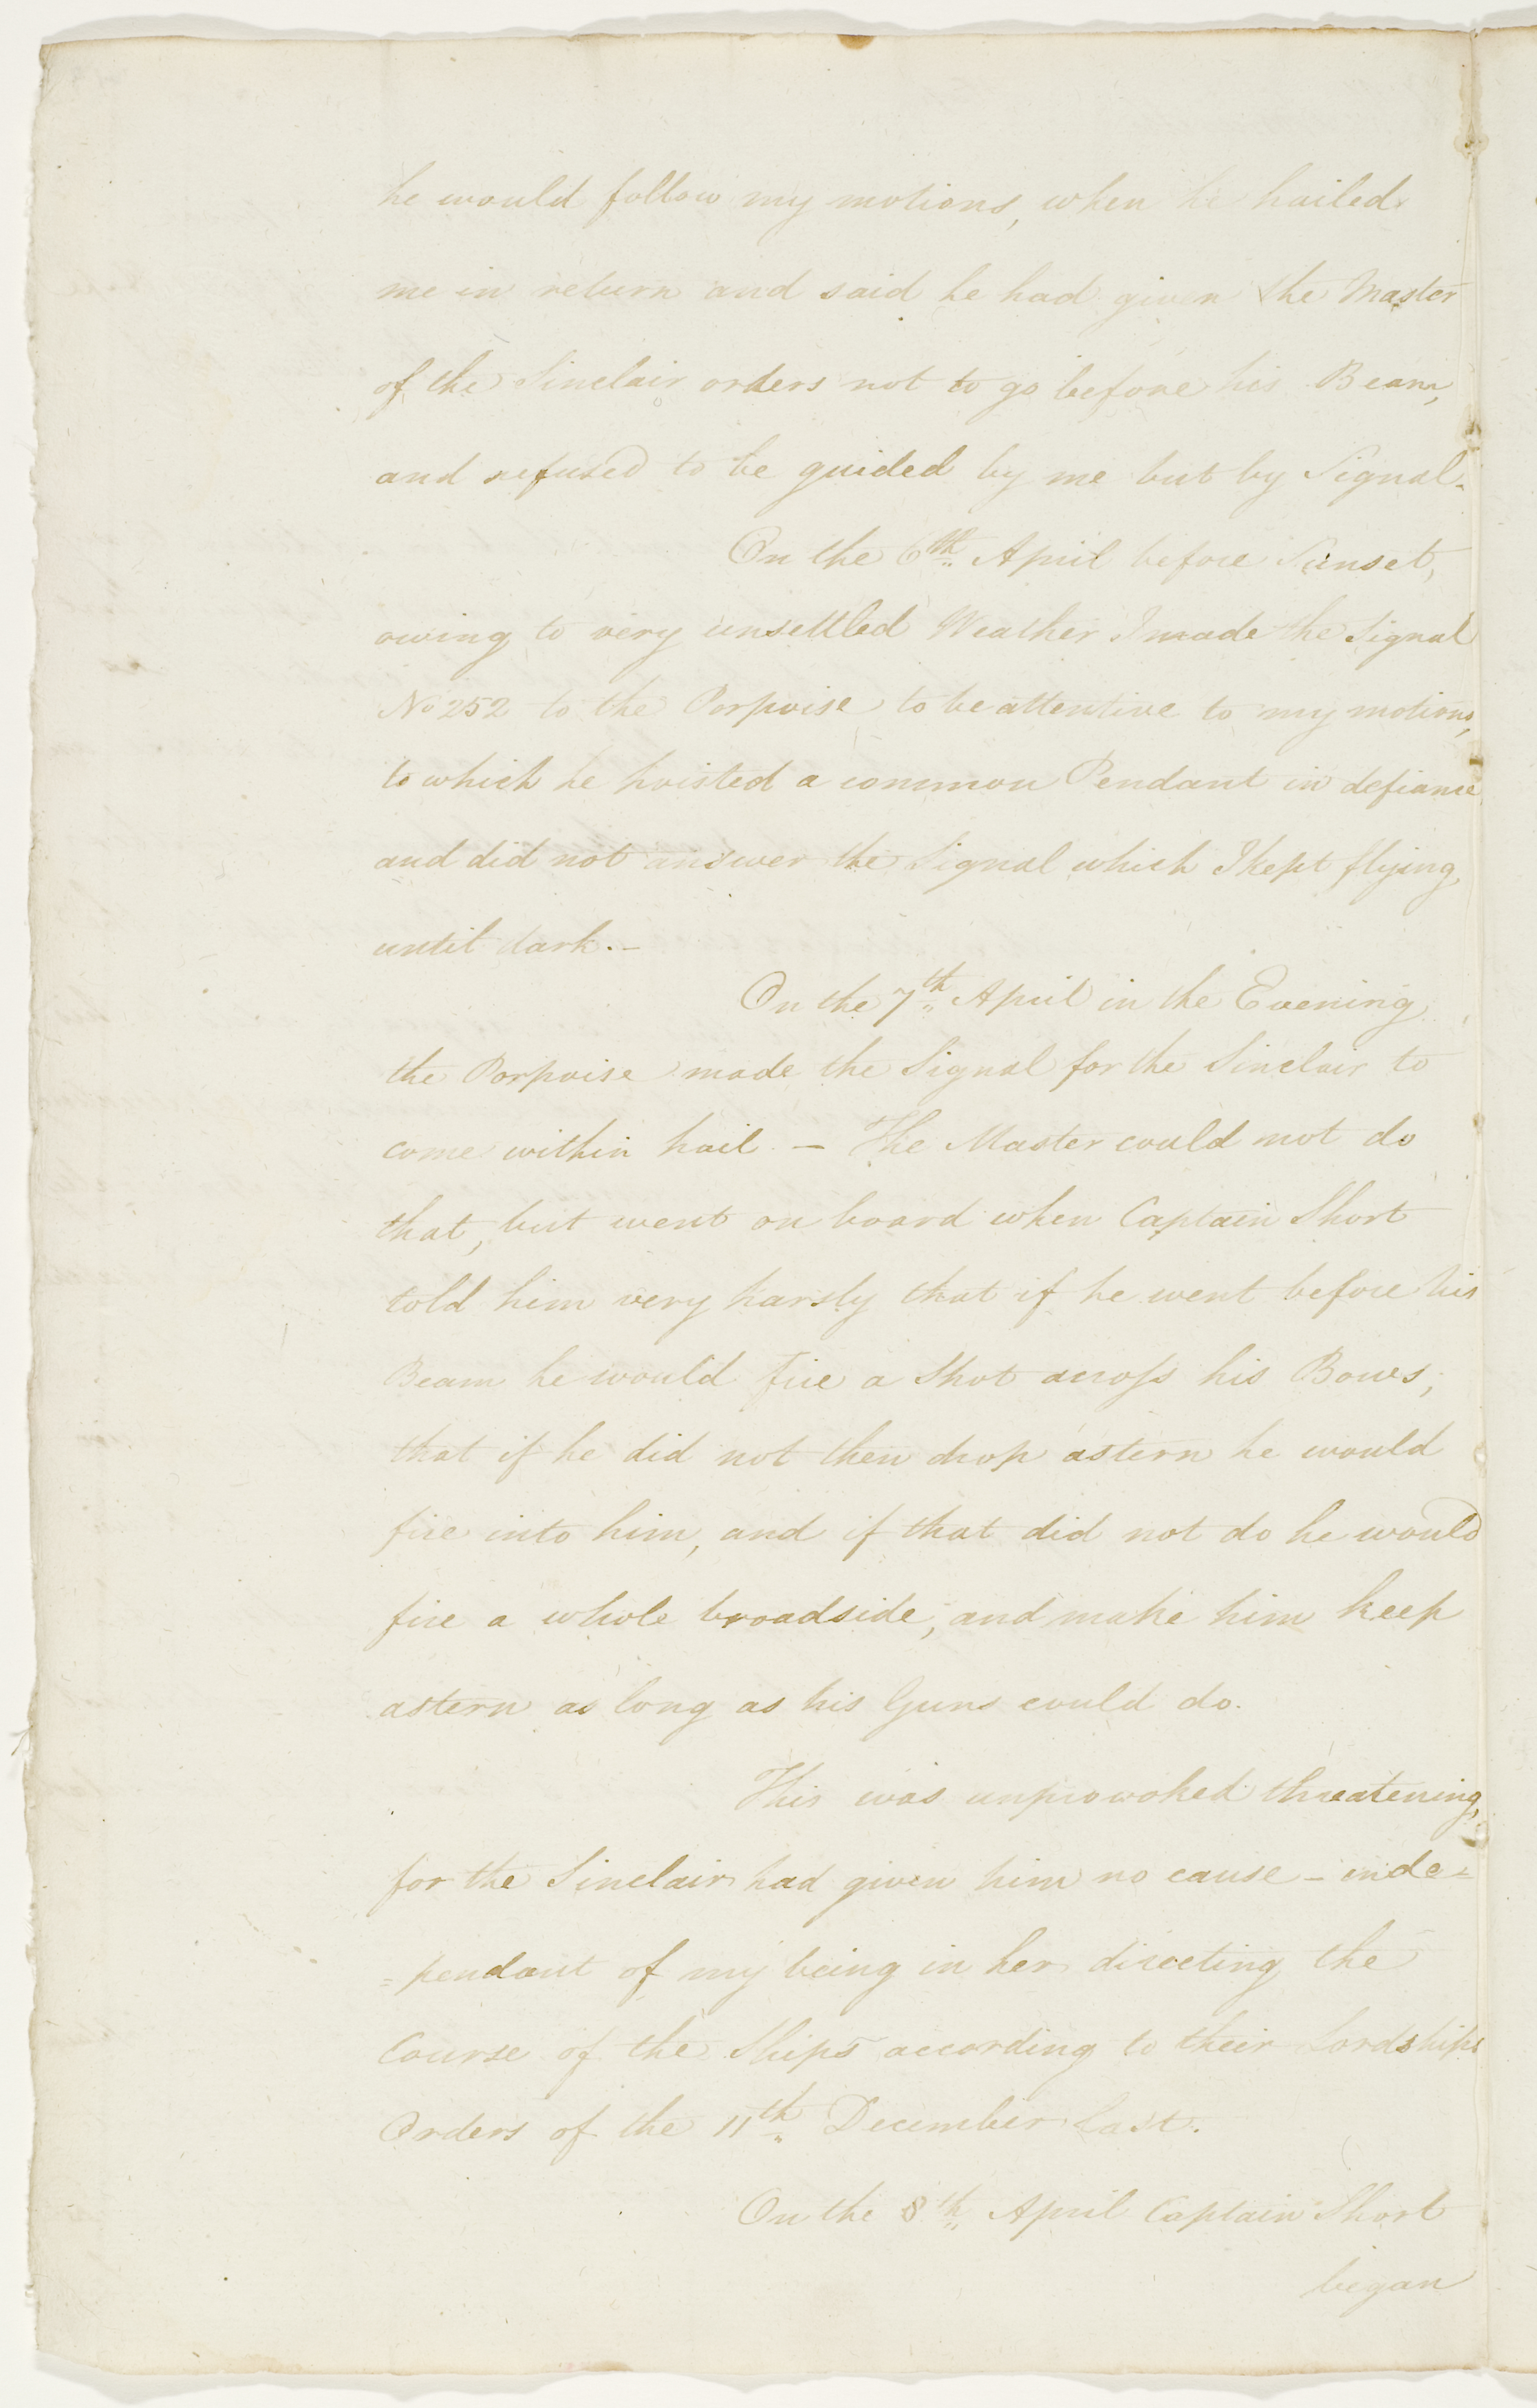 he would follow my motions, when he hailed
me in return and said he had given the Master
of the Sinclair orders not to go before his Beam,
and refused to be guided by me but by Signal.
On the 6th April before Sunset,
owing to very unsettled Weather I made the Signal
No 252 to the Porpoise to be attentive to my motions,
to which he hoisted a common Pendant in defiance
and did not answer the Signal which I kept flying
until dark.—
On the 7th April in the Evening
the Porpoise made the Signal for the Sinclair to
come within hail — The Master could not do
that, but went on board when Captain Short
told him very harsly that if he went before his
Beam he would fire a Shot across his Bows;
that if he did not then drop astern he would
fire into him, and if that did not do he would
fire a whole broadside, and make him keep
astern as long as his Guns could do.
This was unprovoked threatening,
for the Sinclair had given him no cause – inde=
=pendant of my being in her directing the
Course of the Ships according to their Lordships
Orders of the 11th December last.
On the 8th April Captain Short
began